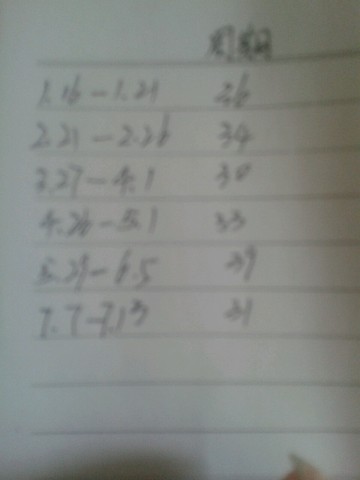 周期
1.16-1.21 36
2.21-2.26 34
3.27-4.1 30
4.26-5.1 33
5.29-6.5 39
7.7-7.13 31